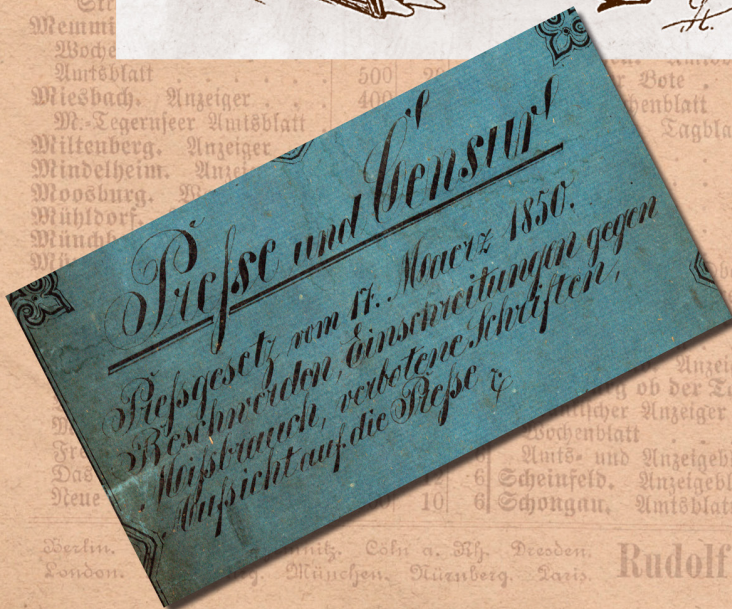 Memmi
Woche
Amtsblatt 500
Miesbach. Anzeiger 400
M.-Tegernseer Amtsblatt
Miltenberg. Anzeiger
Mindelheim. Anzei
Moosburg.
Mühldorf.
Münchb
Bote
henblatt
Tagbla
Preſse und Censur!
Preſsgesetz vom 17. Maerz 1850.
Beschwerden, Einschreitungen gegen
Miſsbrauch, verbotene Schriften,
Aufsicht auf die Preſse
Anzei
ob der Ta
tlicher Anzeiger
Wochenblatt
Amts- und Anzeigebl
6 Scheinfeld. Anzeigebl
10 6 Schongau. Amtsblatt
Das
Neue
Berlin. Cöln a. Rh. Dresden.
London. München. Nürnberg. Paris.
Rudolf